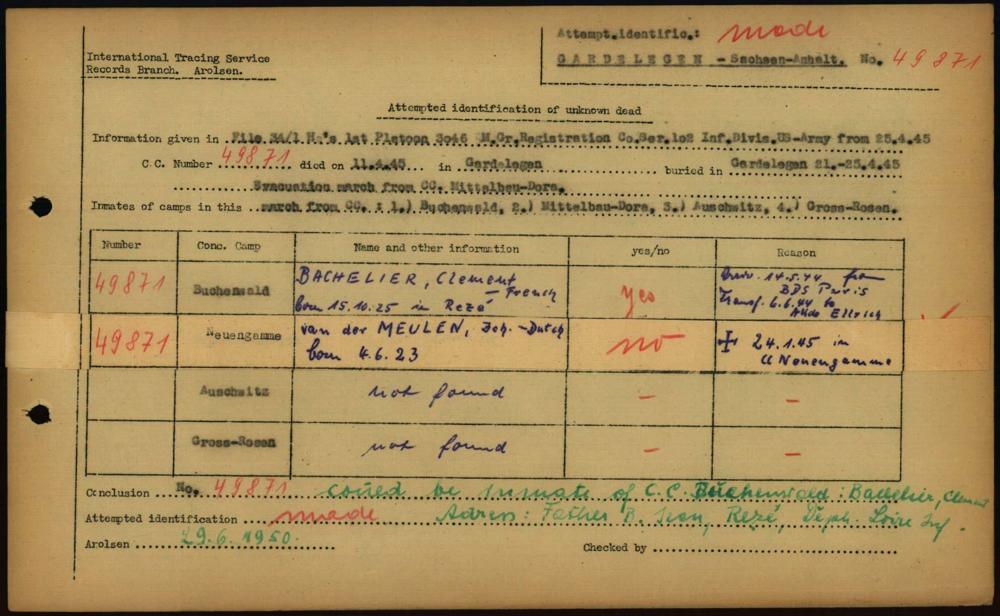 Attempt.identific.: made
International Tracing Service
Records Branch. Arolsen.
GARDELEGEN - Sachsen-Anhalt. No. 49871
Attempted identification of unknown dead
Information given in File 3A/1 Hq's 1st Platoon 3046 M.Gr.Registration Co.Ser.102 Inf.Divis.US-Army from 25.4.45
C.C. Number 49871 died on 11.4.45 in Gardelegen buried in Gardelegen 21.-25.4.45
Evacuation march from CC. Mittelbau-Dora.
Inmates of camps in this march from CC. : 1.) Buchenwald, 2.) Mittelbau-Dora, 3.) Auschwitz, 4.) Gross-Rosen.
Number Conc. Camp Name and other information yes/no Reason
49871 Buchenwald BACHELIER, Clement - French born 15.10.25 in Rezé yes 14.5.44 from BDS Paris Transf. 6.6.44 to Aldo Ellrich
49871 Neuengamme van der MEULEN, Joh. - Dutch born 4.6.23 no ✝ 24.1.45 in Neuengamme
Auschwitz not found - -
Gross-Rosen not found - -
Conclusion No. 49871 could be inmate of C.C. Buchenwald: Bachelier, Clement
Attempted identification made Adress: Father B. Jean, Rezé, Deph. Loire Inf.
Arolsen 29.6.1950. Checked by